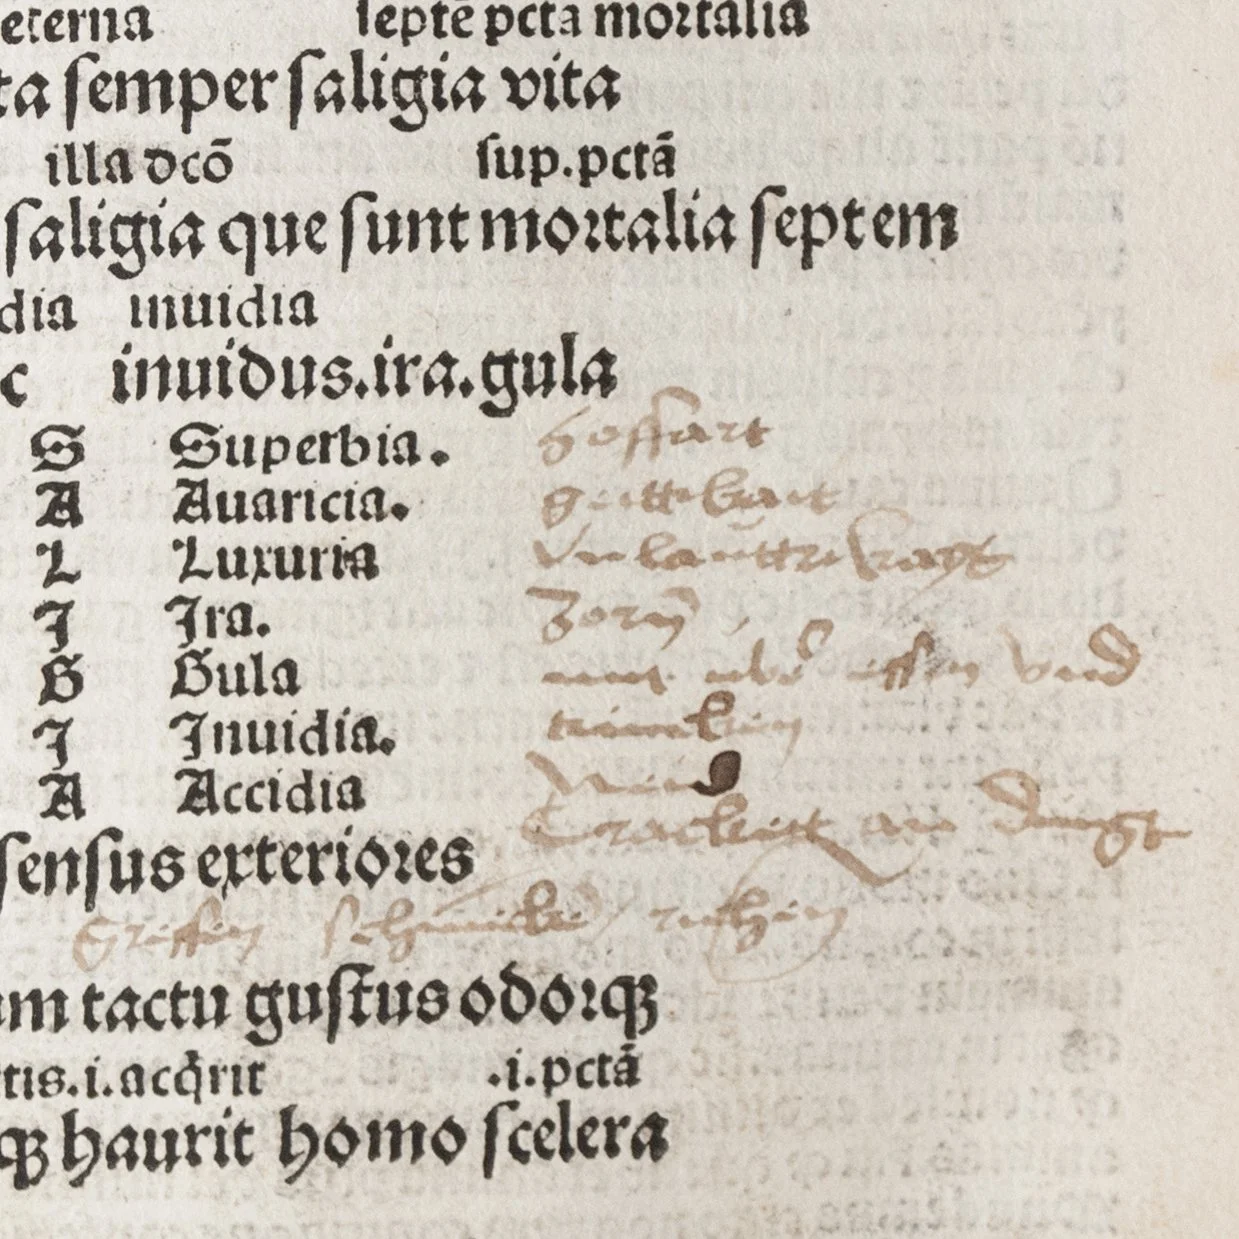 eterna septē pctā mortalia
ta semper saligia vita
illa dcō sup.pctā
saligia que sunt mortalia septem
dia inuidia
c inuidus.ira.gula
S Superbia. hoffart
A Auaricia.
L Luxuria
I Ira. Zorn
G Gula essen vnd
I Inuidia. trincken
A Accidia
sensus exteriores
Griffen
um tactu gustus odorqꝫ
tis.i.acq̄rit .i.pctā
qꝫ haurit homo scelera